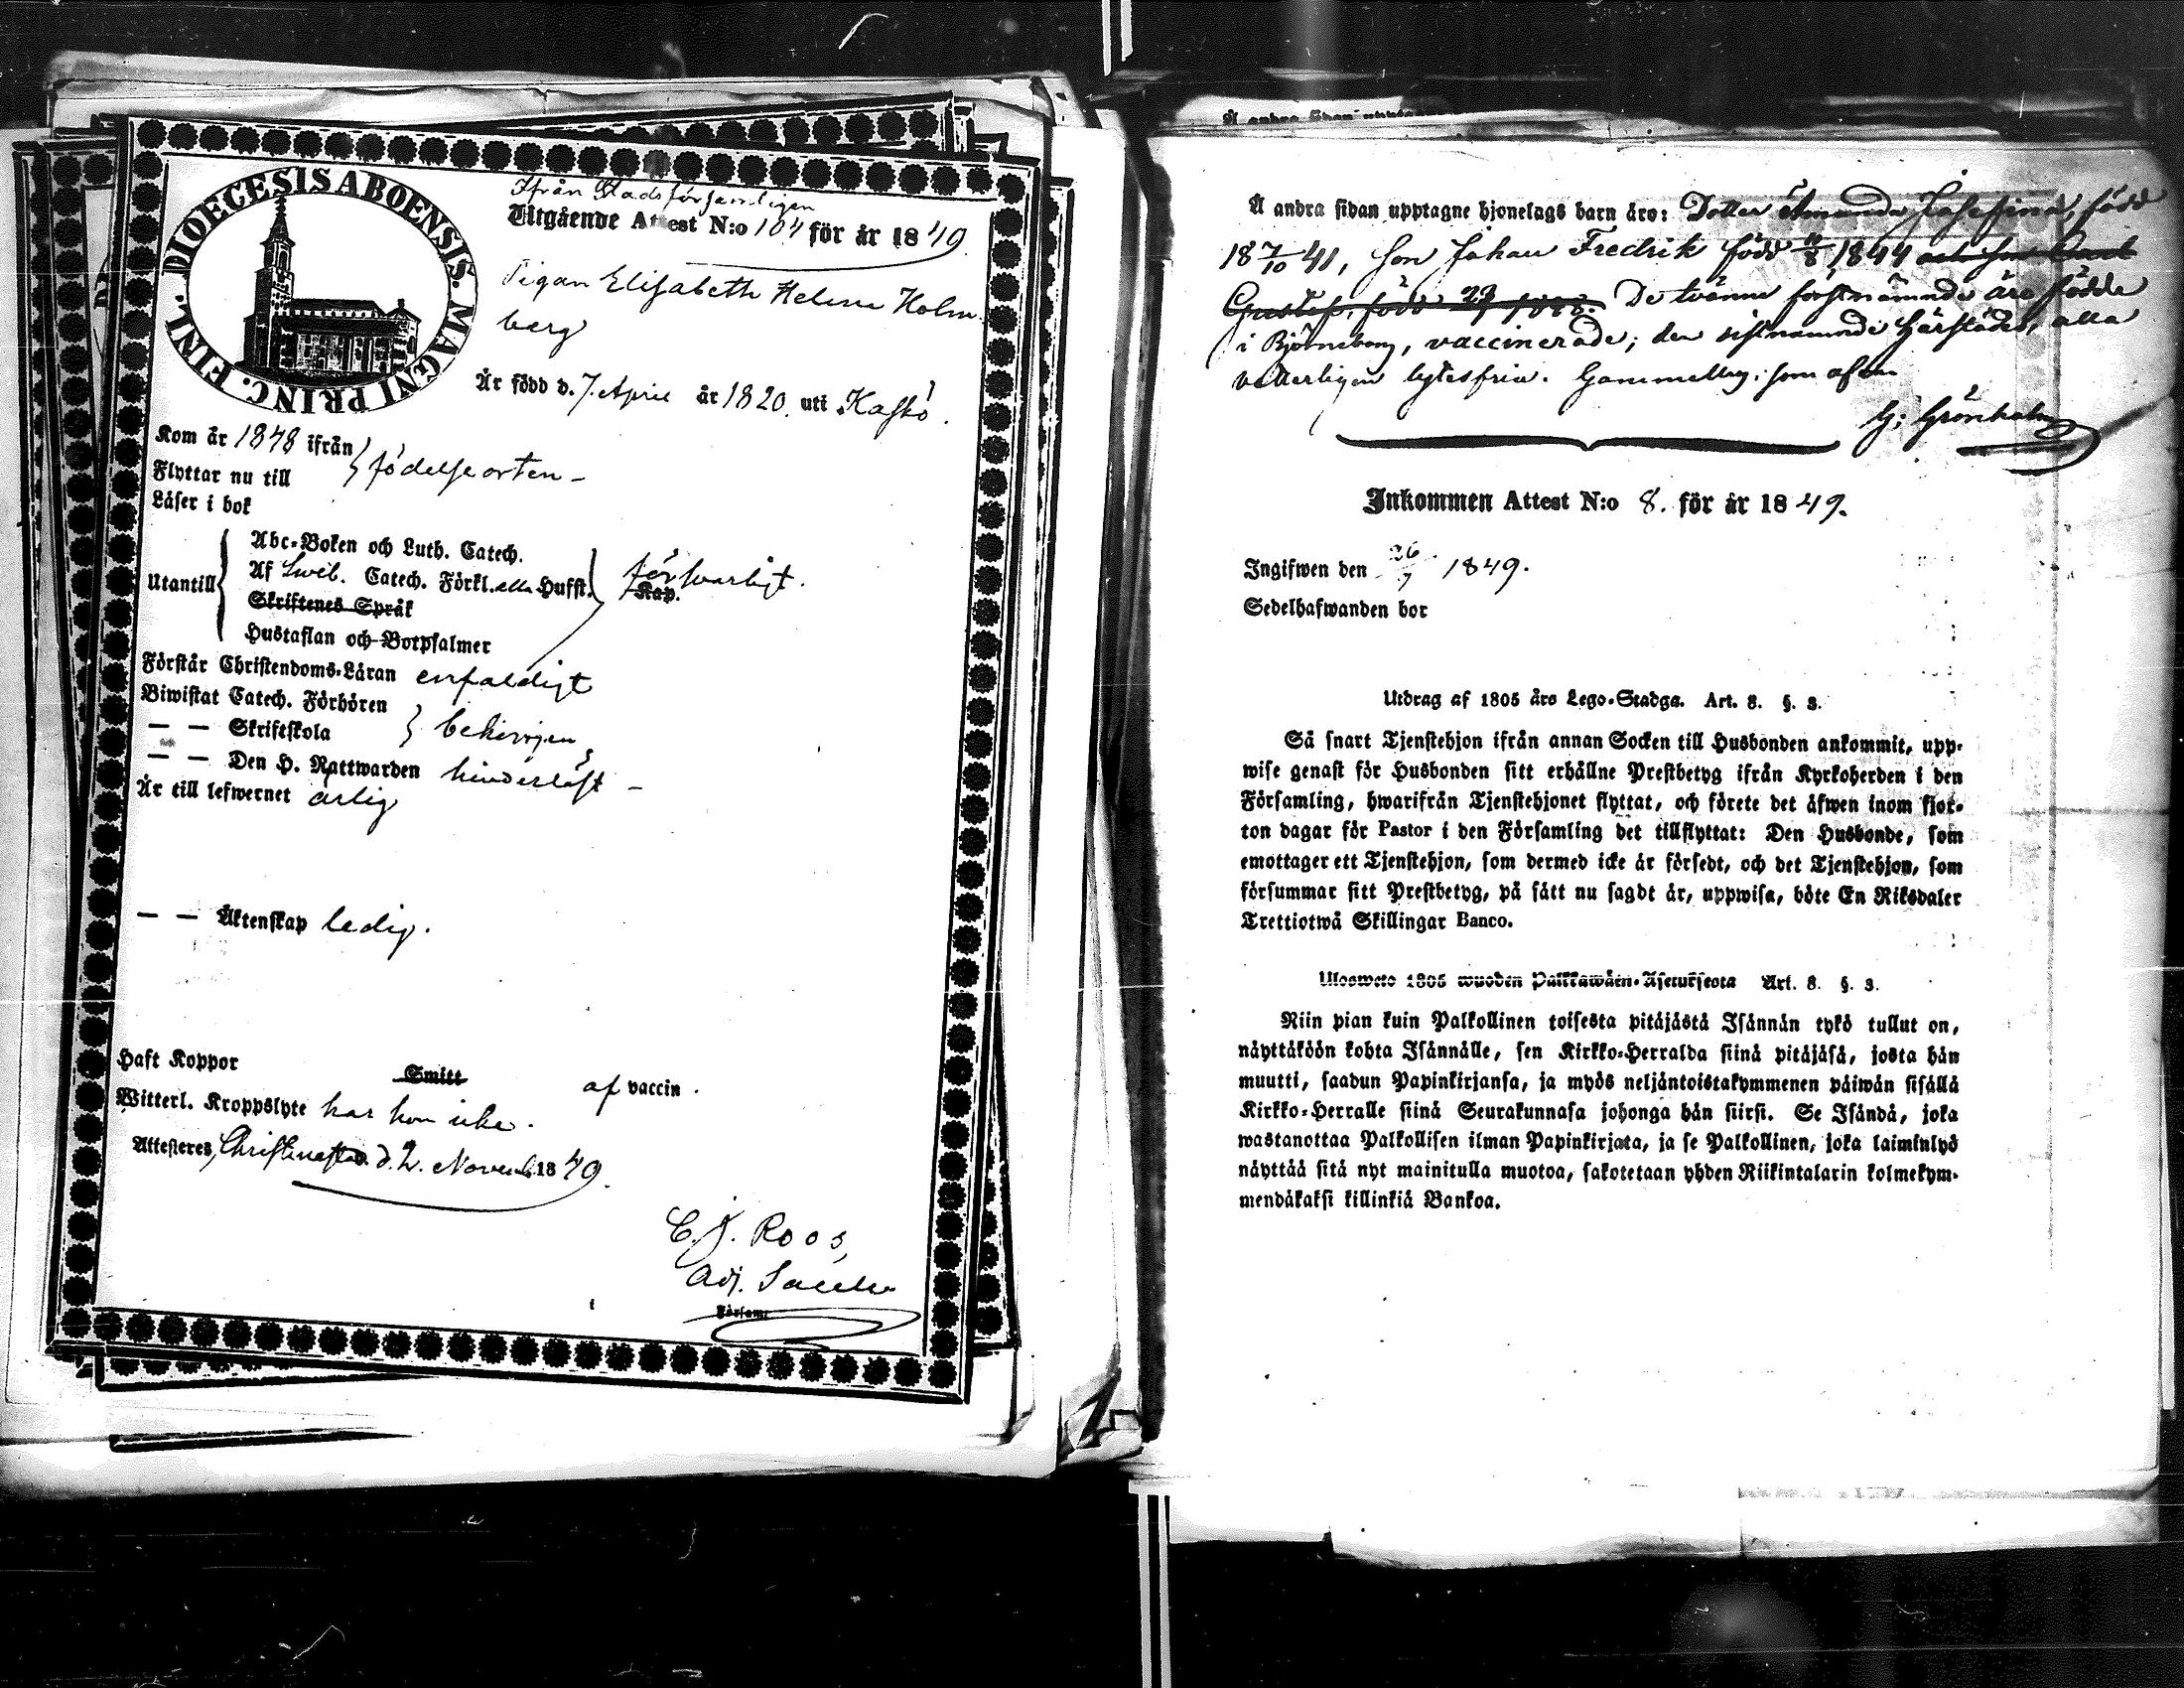 DIOECESIS ABOENSIS. MAGNI PRINC. FINL.
Ifrån Stadsförsamlingen
Utgående Attest N:o 104 för år 1849
Pigan Elisabeth Helena Holm
berg
Är född d. 7. April år 1820. uti Kaskö.
Kom år 1848 ifrån
Flyttar nu till } födelseorten –
Läser i bok
Abc-Boken och Luth. Catech.
Utantill { Af Sweb. Catech. Förkl. eller Hufst. } försvarligt.
Kap.
Skriftenes Språk
Hustaflan och Botpsalmer
Förstår Christendoms-Läran enfaldigt
Biwistat Catech. Förhören
— — Skriftskola } behörigen
— — Den H. Nattwarden hinderslöst –
Är till lefwernet ärlig
— — Äktenskap ledig.
Haft Koppor
Smitt af vaccin.
Witterl. Kroppslyte har hon icke.
Attesteres, Christinestad d. 2. Novemb. 1849.
C. J. Roos,
Adj. Sacell.
Församl.
Å andra sidan upptagne hjonelags barn äro: Dotter Amanda Josefina, född
18 7/10 41, Son Johan Fredrik född 11/8 1844 och son Carl
Gustaf, född De tvänne förstnämnde äro födde
i Björneborg, vaccinerade; den sistnämnde härstädes, alla
vetterligen lytesfria. Gammelby; som ofvan
G; Grönholm
Inkommen Attest N:o 8. för år 1849.
Ingifwen den 26/7 1849.
Sedelhafwanden bor
Utdrag af 1805 års Lego-Stadga. Art. 8. §. 3.
Så snart Tjenstehjon ifrån annan Socken till Husbonden ankommit, upp-
wise genast för Husbonden sitt erhållne Prestbetyg ifrån Kyrkoherden i den
Församling, hwarifrån Tjenstehjonet flyttat, och förete det äfwen inom fjor-
ton dagar för Pastor i den Församling det tillflyttat: Den Husbonde, som
emottager ett Tjenstehjon, som dermed icke är försedt, och det Tjenstehjon, som
försummar sitt Prestbetyg, på sätt nu sagdt är, uppwisa, böte En Riksdaler
Trettiotwå Skillingar Banco.
Ulosweto 1805 wuoden Palkkawäen-Asetuksesta Art. 8. §. 3.
Niin pian kuin Palkollinen toisesta pitäjästä Isännän tykö tullut on,
näyttäköön kohta Isännälle, sen Kirkko-Herralda siinä pitäjäsä, josta hän
muutti, saadun Papinkirjansa, ja myös neljäntoistakymmenen päiwän sisällä
Kirkko-Herralle siinä Seurakunnasa johonga hän siirsi. Se Isändä, joka
wastanottaa Palkollisen ilman Papinkirjata, ja se Palkollinen, joka laiminlyö
näyttää sitä nyt mainitulla muotoa, sakotetaan yhden Riikintalarin kolmekym-
mendäkaksi killinkiä Bankoa.